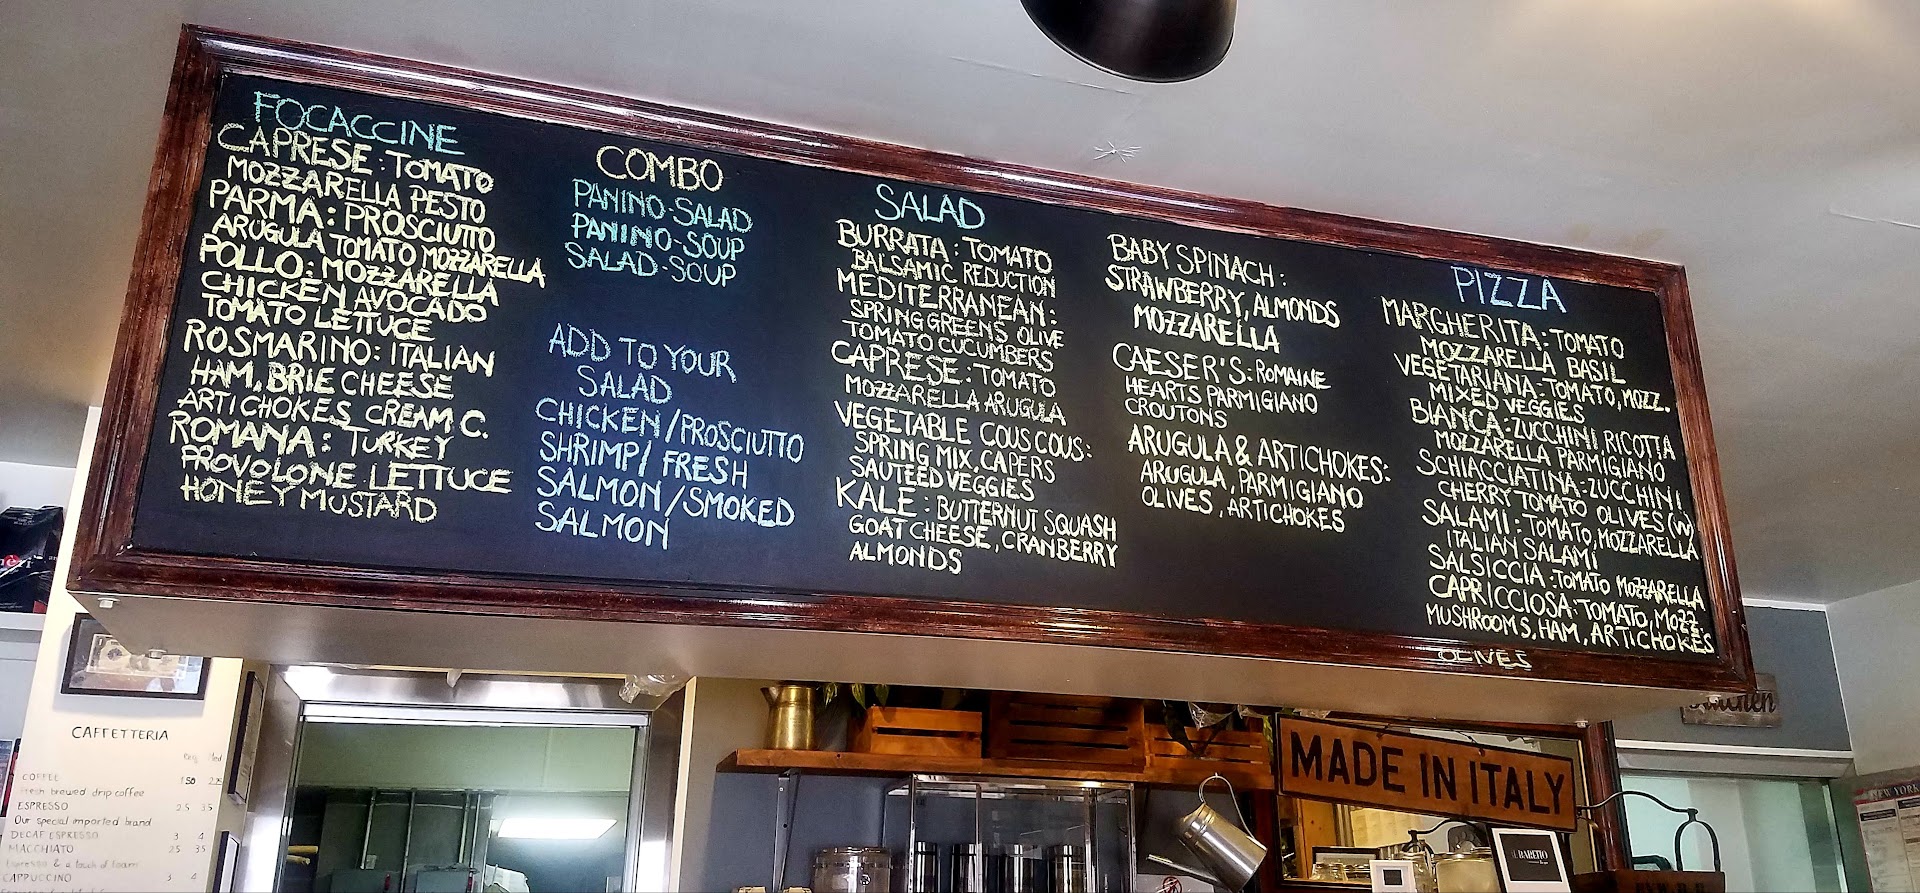 FOCACCINE
CAPRESE: TOMATO
MOZZARELLA PESTO
PARMA: PROSCIUTTO
ARUGULA TOMATO MOZZARELLA
POLLO: MOZZARELLA
CHICKEN AVOCADO
TOMATO LETTUCE
ROSMARINO: ITALIAN
HAM, BRIE CHEESE
ARTICHOKES CREAM C.
ROMANA: TURKEY
PROVOLONE LETTUCE
HONEY MUSTARD
COMBO
PANINO-SALAD
PANINO-SOUP
SALAD-SOUP
ADD TO YOUR
SALAD
CHICKEN/PROSCIUTTO
SHRIMP/ FRESH
SALMON/SMOKED
SALMON
SALAD
BURRATA: TOMATO
BALSAMIC REDUCTION
MEDITERRANEAN:
SPRING GREENS OLIVE
TOMATO CUCUMBERS
CAPRESE: TOMATO
MOZZARELLA ARUGULA
VEGETABLE COUSCOUS:
SPRING MIX, CAPERS
SAUTEED VEGGIES
KALE: BUTTERNUT SQUASH
GOAT CHEESE, CRANBERRY
ALMONDS
BABY SPINACH:
STRAWBERRY, ALMONDS
MOZZARELLA
CAESER'S: ROMAINE
HEARTS PARMIGIANO
CROUTONS
ARUGULA & ARTICHOKES:
ARUGULA, PARMIGIANO
OLIVES, ARTICHOKES
PIZZA
MARGHERITA: TOMATO
MOZZARELLA BASIL
VEGETARIANA: TOMATO, MOZZ.
MIXED VEGGIES
BIANCA: ZUCCHINI, RICOTTA
MOZZARELLA PARMIGIANO
SCHIACCIATINA: ZUCCHINI
CHERRY TOMATO OLIVES (VV)
SALAMI: TOMATO, MOZZARELLA
ITALIAN SALAMI
SALSICCIA: TOMATO MOZZARELLA
CAPRICCIOSA: TOMATO, MOZZ.
MUSHROOMS, HAM, ARTICHOKES
OLIVES
CAFFETTERIA
Med
COFFEE 2.25
Fresh brewed drip coffee
ESPRESSO 2.5 3.5
Our special imported brand
DECAF ESPRESSO 3 4
MACCHIATO 2.5 3.5
Espresso & a touch of foam
CAPPUCCINO 3 4
MADE IN ITALY
Kitchen
NEW YORK
IL BARETTO